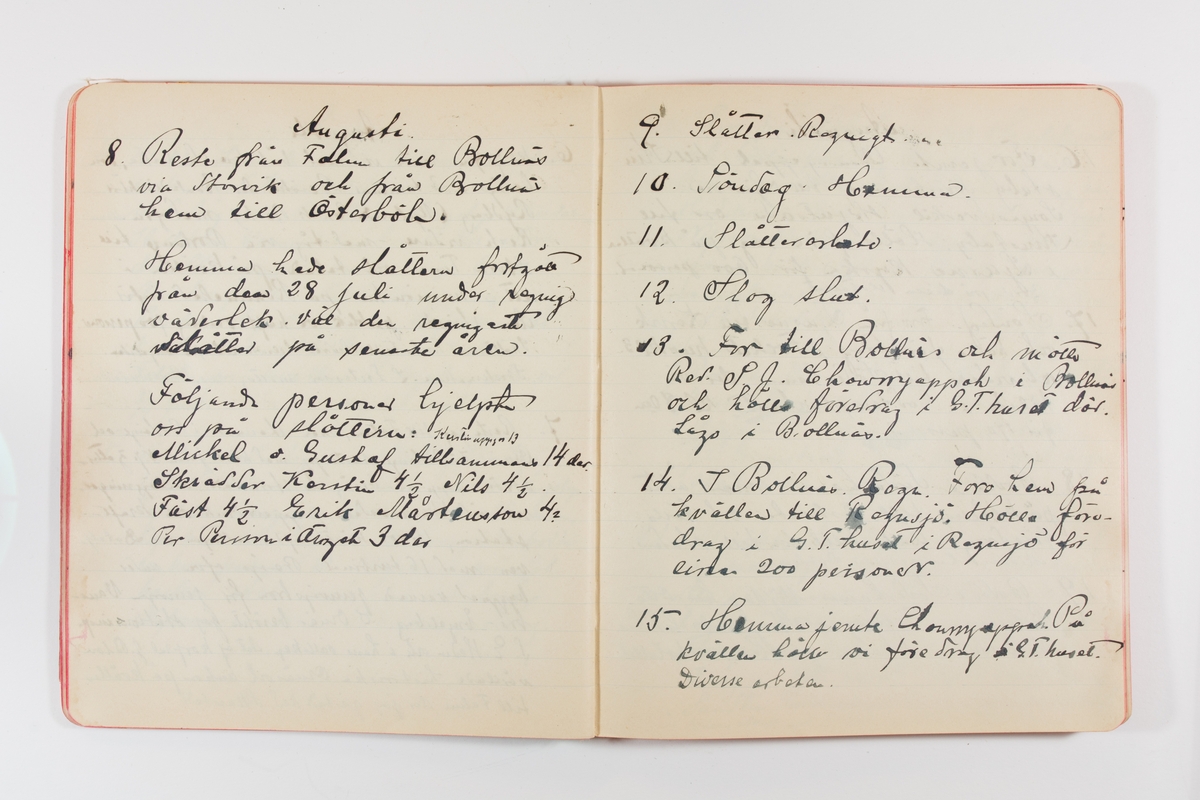 Augusti.
8. Reste från Falun till Bollnäs
via Storvik och från Bollnäs
hem till Österböle.
Hemma hade slåttern fortgått
från den 28 juli under regnig
väderlek. väl den regnigaste
slåtter på senaste åren.
Följande personer hjelpte
oss på slåttern: Kerstin 13
Mickel o. Gustaf tillsammans 14 dar.
Skrädder Kerstin 4½ Nils 4½.
Fäst 4½ Erik Mårtensson 4½
Per Persson i 3 dar
9. Slåtter. Regnigt.
10. Söndag. Hemma.
11. Slåtterarbete.
12. Slog slut.
13. For till Bollnäs och mötte
Rev. S. J. Chowryappah i Bollnäs
och hölls föredrag i G.T. huset där.
Lågo i Bollnäs.
14. I Bollnäs. Regn. Foro hem på
kvällen till Regnsjö. Hölls före-
drag i G.T. huset i Regnsjö för
cirka 200 personer.
15. Hemma jemte Chowryappah. På
kvällen höllo vi föredrag i G.T. huset.
Diverse arbeten.